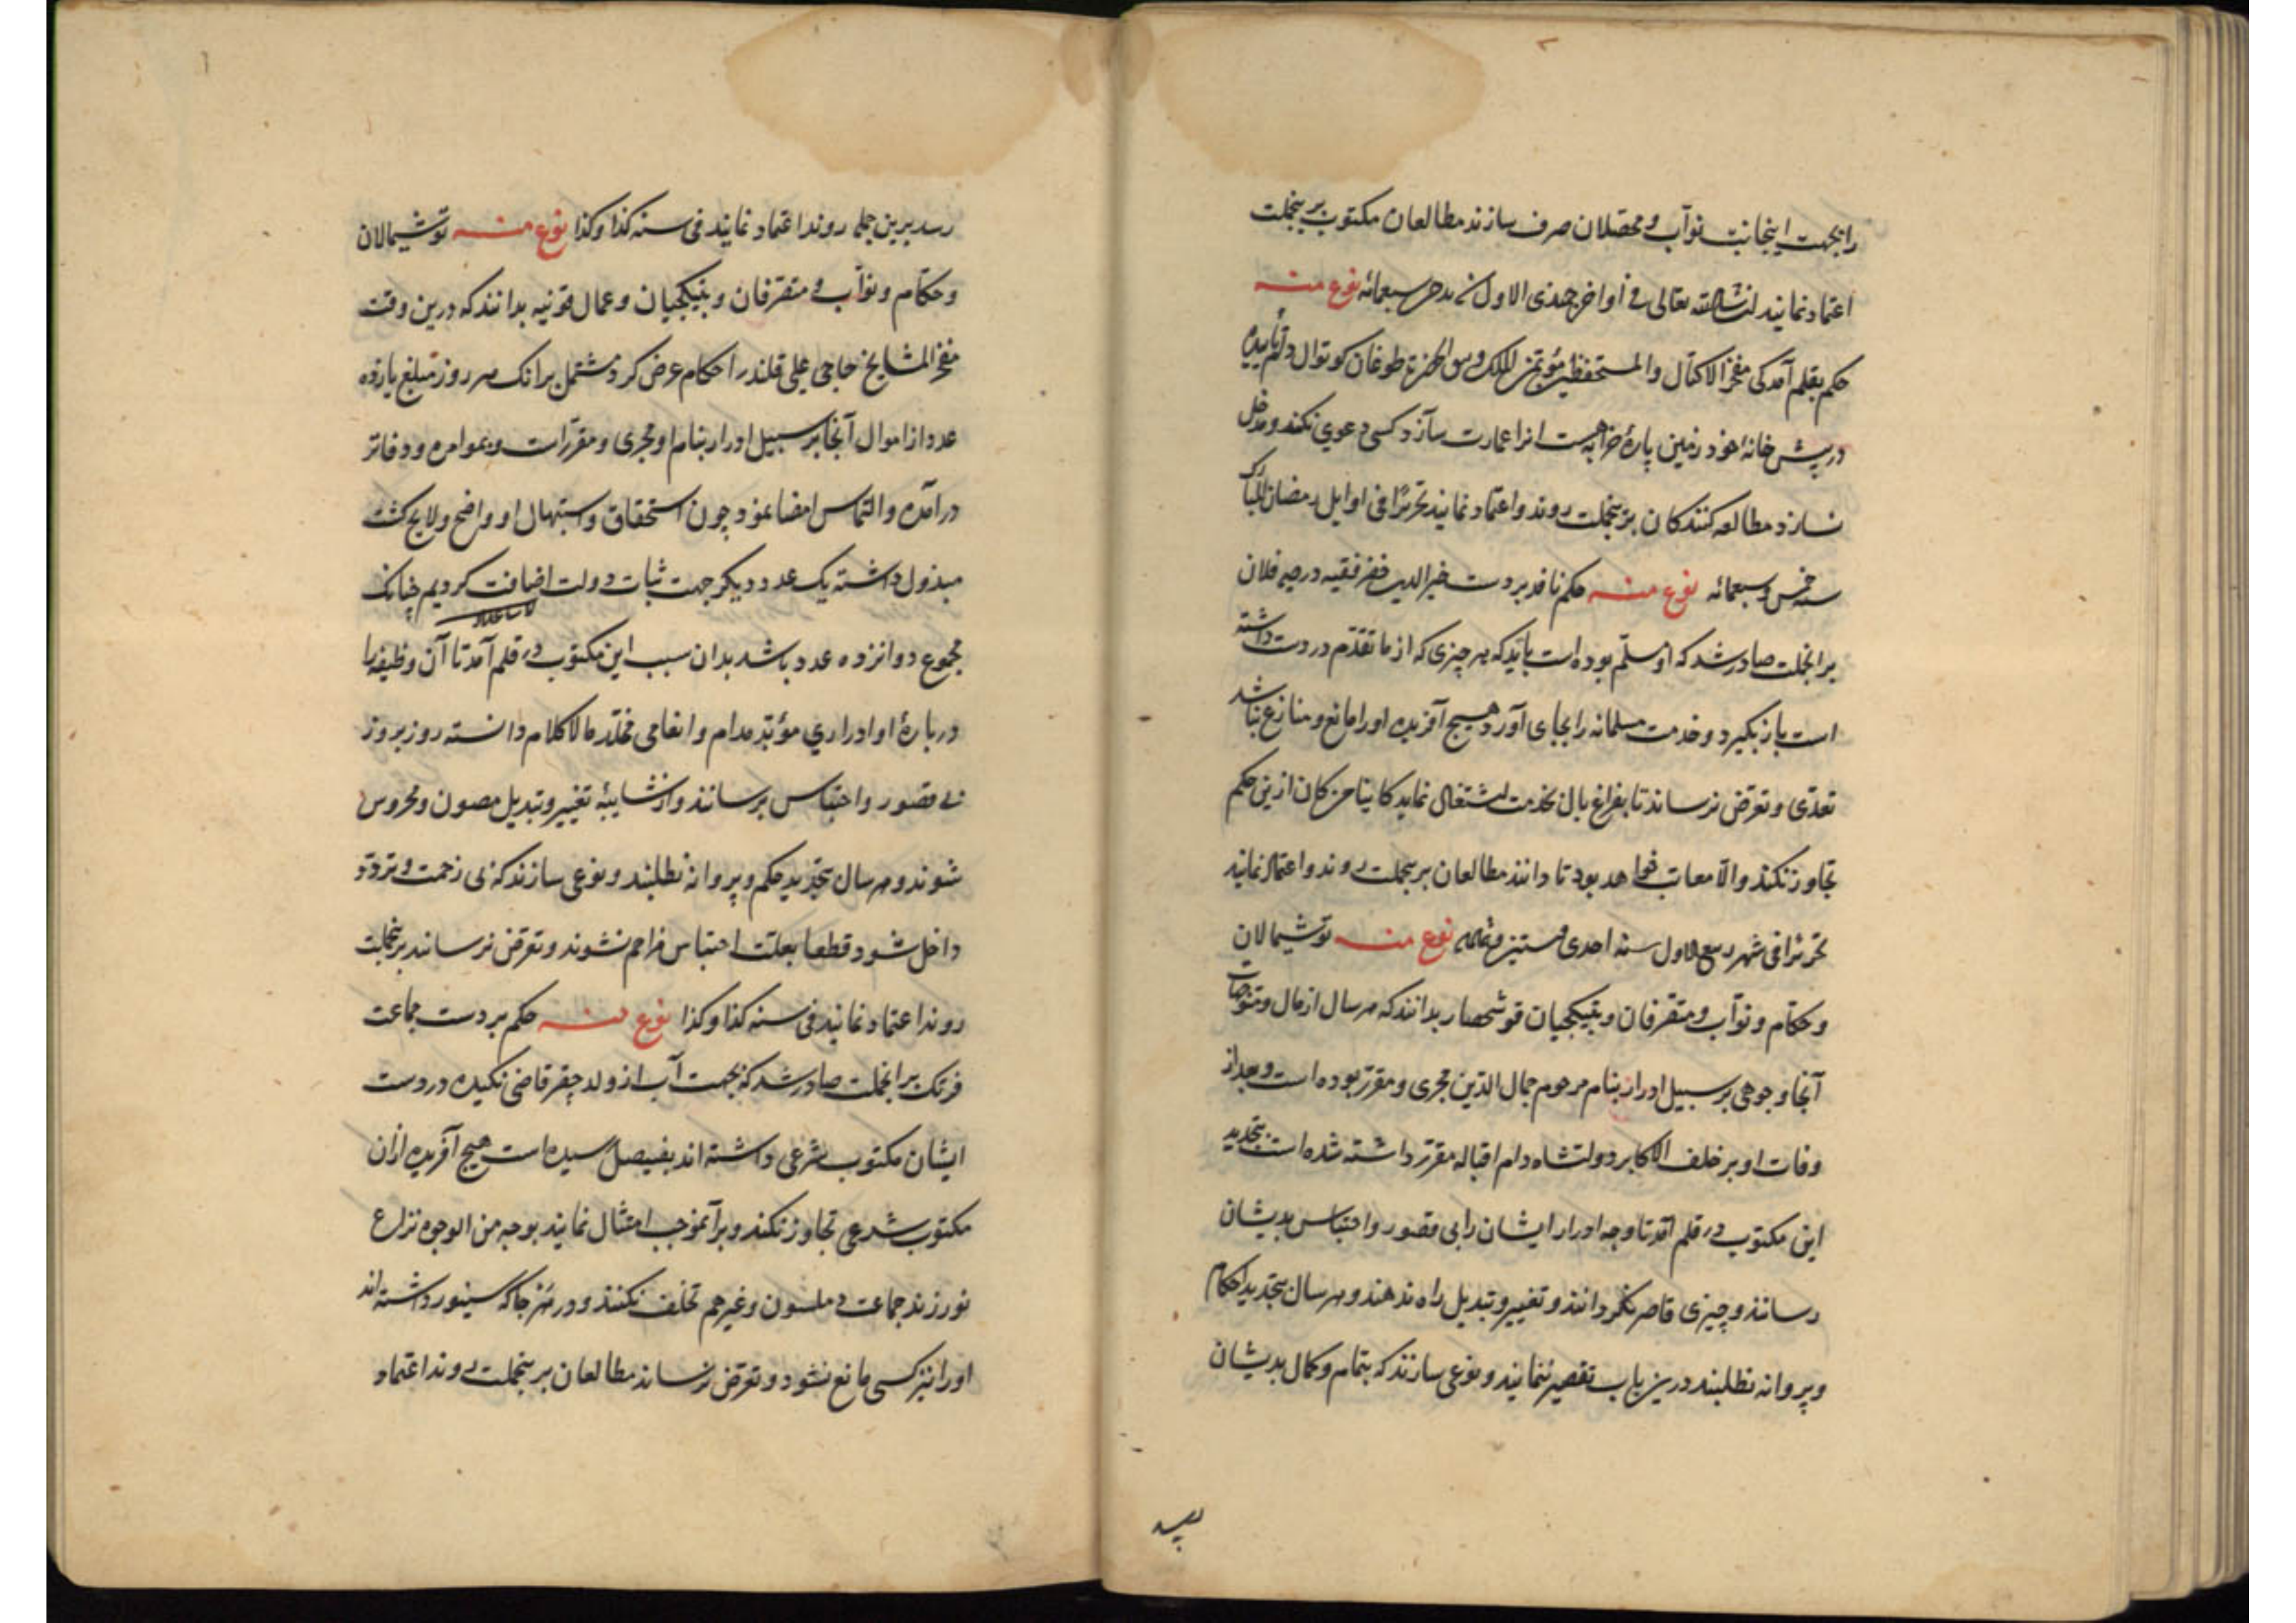 را بجهت اینجانب نواب و محصلان صرف سازند مطالعان مکتوب برینجملت
اعتماد نمایند انشاالله تعالی فی أواخر جمذی الاول سبعمائه نوع منه
حکم بقلم آمد کی مفخر الاکتال والمستحفظین مؤتمن الملک طوغان کوتوال دام تأییده
در پیش خانه خود زمین پارهٔ خرابه هست انرا عمارت سازد کسی دعوی نکند و مدخل
نسازد مطالعه کنندکان برینجملت روند و اعتماد نمایند تحریرًا فی اوایل رمضان المبارک
سنه خمس وسبعمائه نوع منه حکم نافد بر دست خیر الدین خضر فقیه در دیه فلان
برانجملت صادر شد که او مسلم بوده است باید که هر چیزی که از ما تقدم در دست داشته
است باز بگیرد و خدمت مسلمانه را بجای آورد هیچ آفریده اورا مانع و منازع نباشد
تعدی و تعرض نرساند تا بفراغ بال بخدمت اشتغال نماید کاینا من کان ازین حکم
تجاوز نکند والا معاتب خواهد بود تا دانند مطالعان برینجملت روند و اعتماد نمایند
تحریرًا فی شهر ربیع الاول سنه احدی و ستین نوع منه توشیمالان
و حکام و نواب و متصرفان و بتیکجیان قوشحصار بدانند که هر سال از مال و متوجهات
آنجا وجوهی بر سبیل ادرار بنام مرحوم جمال الدین مجری و مقرر بوده است و بعد از
وفات او بر خلف الاکابر دولتشاه دام اقباله مقرر داشته شده است بتجدید
این مکتوب در قلم آمد تا وجه ادرار ایشان را بی قصور و احتباس بدیشان
رسانند و چیزی قاصر نکردانند و تغییر و تبدیل راه ندهند و هر سال بتجدید احکام
و پروانه نطلبند درین باب تقصیر ننمایند و نوعی سازند که بتمام و کمال بدیشان
رسد برین جمله روند اعتماد نمایند فی سنه کذا وکذا نوع منه توشیمالان
و حکام و نواب و متصرفان و بتیکجیان و عمال قونیه بدانند که درین وقت
مفخر المشایخ حاجی علی قلندر احکام عرض کرد مشتمل برانک هر روز مبلغ یازده
عدد از اموال آنجا بر سبیل ادرار بنام او مجری و مقررات و بموامره و دفاتر
درامده و التماس امضا نمود چون استحقاق و استهال او واضح ولایح کشت
مبذول داشته یک عدد دیکر جهت ثبات دولت اضافت کردیم چنانک
مجموع دوانزده عدد باشد بدان سبب این مکتوب در قلم آمد تا آن وظیفه را
دربارهٔ او ادراری مؤبد مدام و انعامی مخلد مالاکلام دانسته روز بروز
بی قصور و احتباس برسانند و از شایبهٔ تغییر و تبدیل مصون و محروس
شوند و هر سال بتجدید حکم و پروانه نطلبند و نوعی سازند که بی زحمت و تردد
داخل شود قطعا بعلت احتباس مزاحم نشوند و تعرض نرسانند برینجملت
روند اعتماد نمایند فی سنه کذا وکذا نوع منه حکم بر دست جماعت
فرنک برانجملت صادر شد که بجهت آب از ولد قاضی نکیده در دست
ایشان مکتوب شرعی داشته اند بفیصل رسیده است هیچ آفریده ازان
مکتوب شرعی تجاوز نکند و برآنموجب امتثال نمایند بوجه من الوجوه نزاع
نورزند جماعت و غیرهم تخلف نکنند و در هر جا که سینور داشته اند
اورا نیز کسی مانع نشود و تعرض نرساند مطالعان برینجملت روند اعتماد